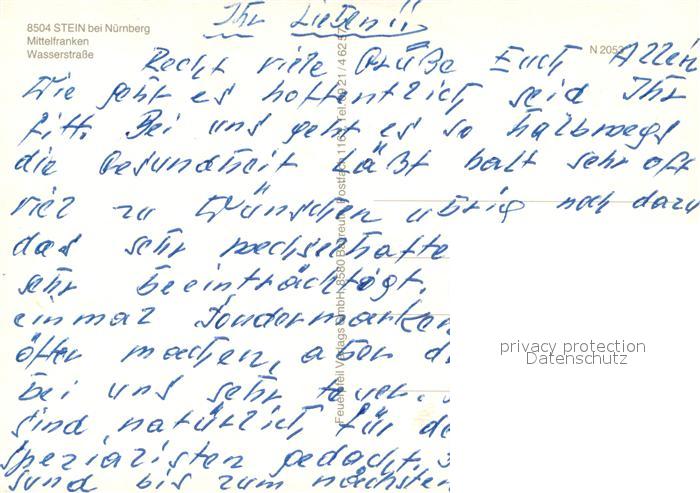 8504 STEIN bei Nürnberg
Mittelfranken
Wasserstraße
N 2053
Ihr Lieben!!
Recht viele Grüße Euch Allen
Wie geht es hoffentlich seid Ihr
fitt. Bei uns geht es so halbwegs
die Gesundheit läßt halt sehr oft
viel zu Wünschen übrig noch dazu
das sehr wechselhafte
sehr beeinträchtigt.
einmal Sondermarken
öfter machen, aber
bei uns sehr teuer.
sind natürlich für
spezialisten gedacht.
sund bis zum nächsten
Feuerpfeil Verlags GmbH, 8580 Bayreuth, Postfach
privacy protection
Datenschutz